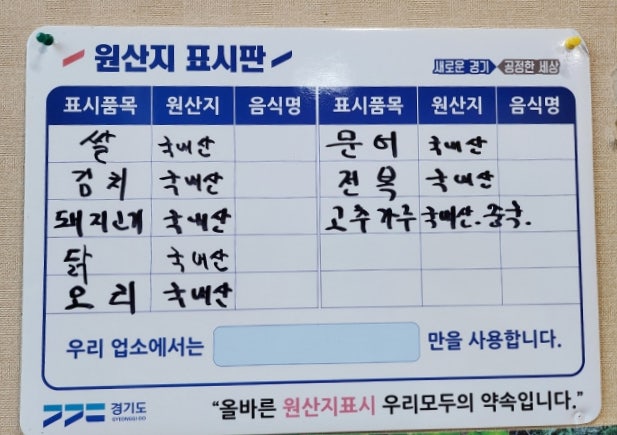 원산지 표시판
새로운 경기 공정한 세상
표시품목 원산지 음식명 표시품목 원산지 음식명
쌀 국내산 문어 국내산
김치 국내산 전복 국내산
돼지고기 국내산 고추가루 국내산.중국.
닭 국내산
오리 국내산
우리 업소에서는 만을 사용합니다.
경기도 "올바른 원산지표시 우리모두의 약속입니다."
GYEONGGI-DO